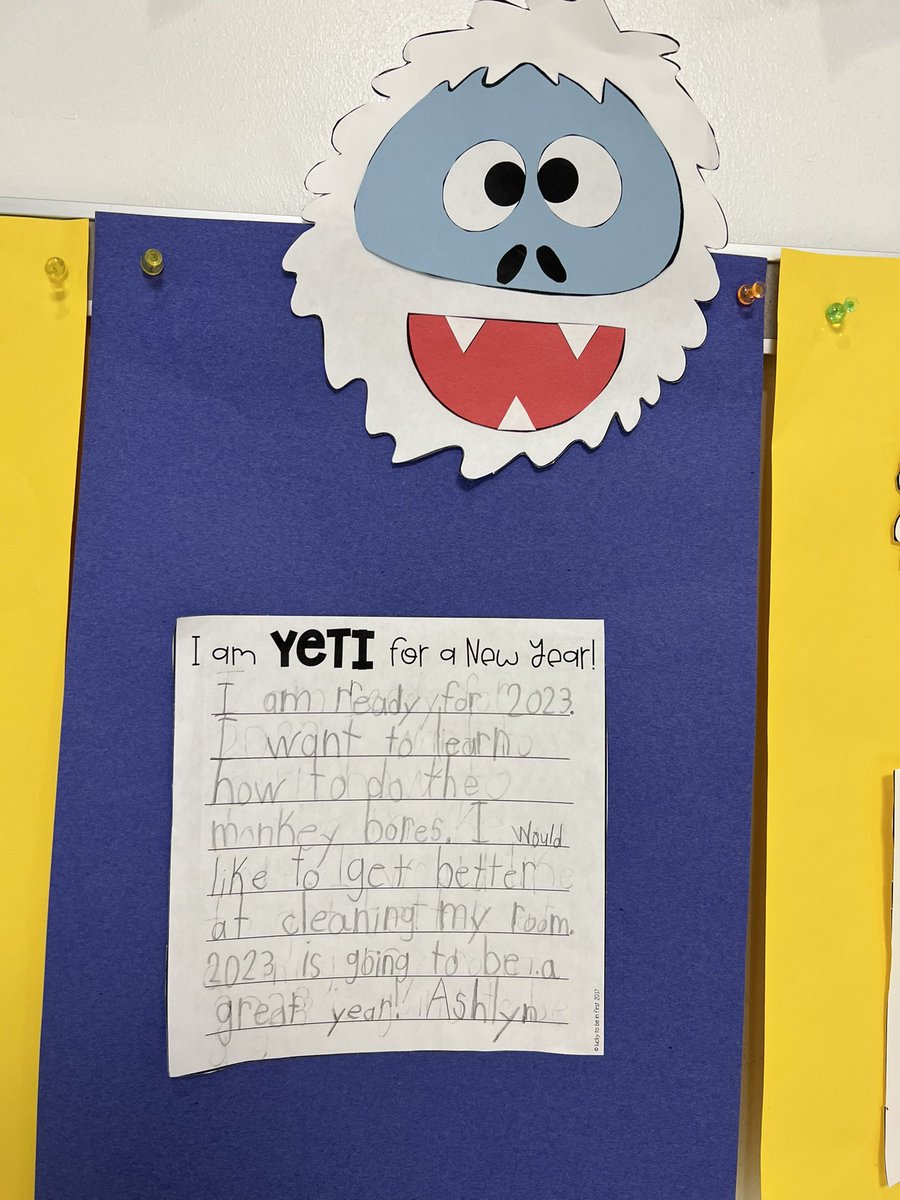 I am YeTI for a New Year!
I am ready for 2023.
I want to learn
how to do the
monkey bores. I would
like to get better
at cleaning my room.
2023 is going to be a
great year! Ashlyn
© lucky to be in first 2017